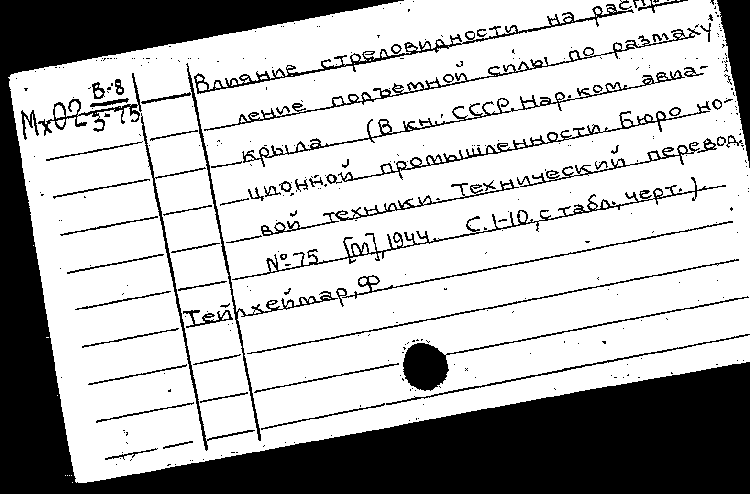 Влияние стреловидности на распр
Мх02 В-8
3-75
ление подъемной силы по размаху
крыла. (В кн.: СССР. Нар. ком. авиа-
ционной промышленности. Бюро но-
вой техники. Технический перевод.
№ 75 [М], 1944. С. 1-10, с табл., черт.).
Тейлхеймар, Ф.